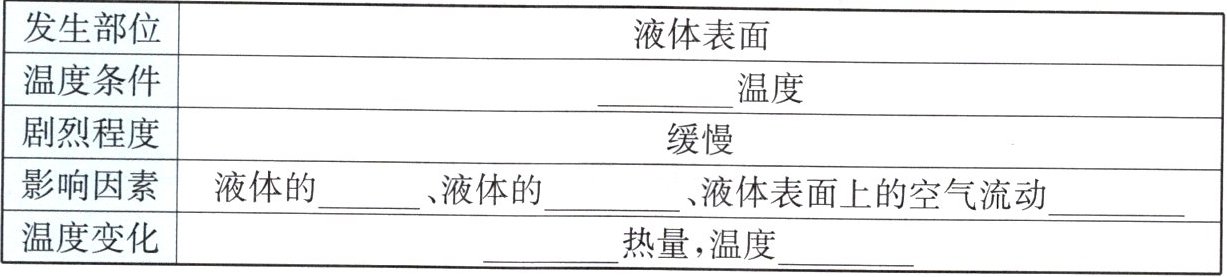 发生部位 液体表面
温度条件 ________温度
剧烈程度 缓慢
影响因素 液体的______、液体的________、液体表面上的空气流动________
温度变化 ________热量,温度________